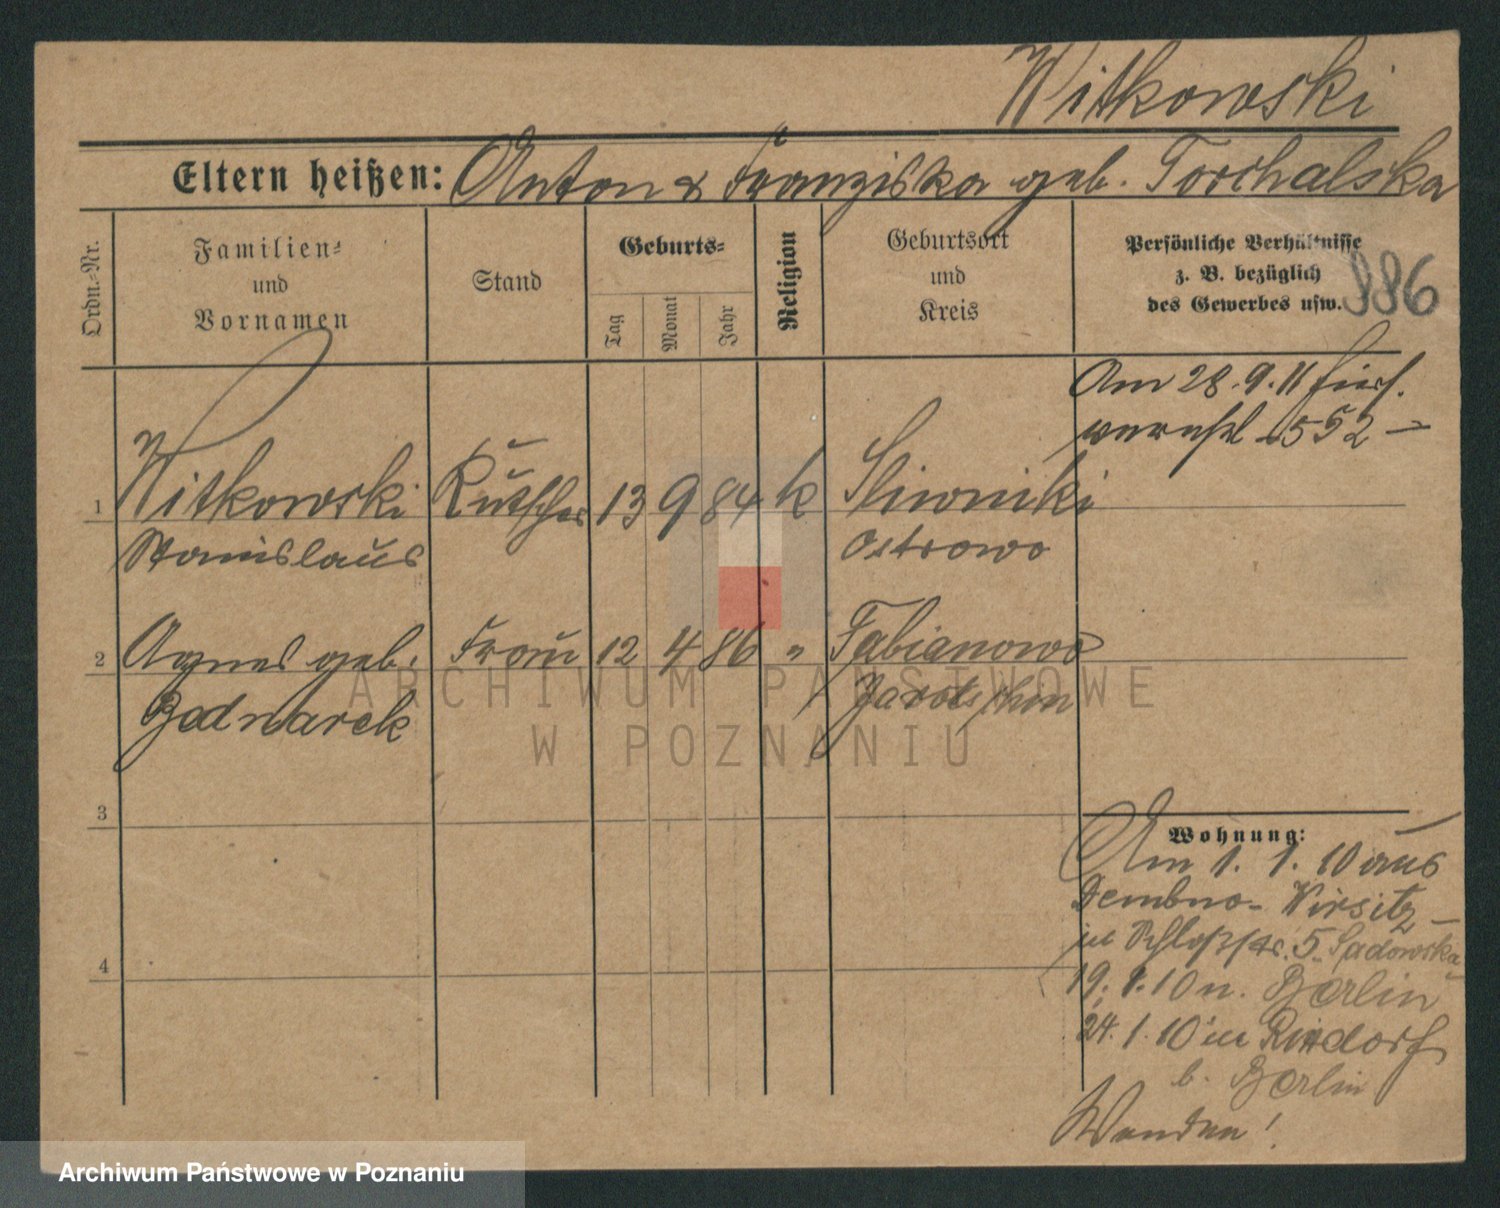 Witkowski
Eltern heißen: Anton & Franziska geb. Torchalska
Ordn.-Nr.
Familien-
und
Vornamen
Stand
Geburts-
Tag
Monat
Jahr
Religion
Geburtsort
und
Kreis
Persönliche Verhältnisse
z. B. bezüglich
des Gewerbes usw.
886
Am 28.9.11
552 —
1 Witkowski Kutscher 13 9 84 k Sliwniki
Stanislaus Ostrowo
2 Agnes geb. Frau 12 4 86 " Fabianowo
Bednarek Jarotschin
3
Wohnung:
Am 1. 1. 10 aus
Dembno - Wirsitz -
in Schloßstr. 5 Sadowska
4
19. 1. 10 n. Berlin
24. 1. 10 in Rixdorf
b. Berlin
Wenden!
ARCHIWUM PAŃSTWOWE
W POZNANIU
Archiwum Państwowe w Poznaniu